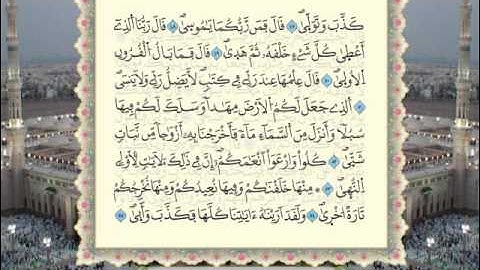 كَذَّبَ وَتَوَلَّىٰ قَالَ فَمَن رَّبُّكُمَا يَٰمُوسَىٰ قَالَ رَبُّنَا ٱلَّذِي
أَعْطَىٰ كُلَّ شَيْءٍ خَلْقَهُۥ ثُمَّ هَدَىٰ قَالَ فَمَا بَالُ ٱلْقُرُونِ
ٱلْأُولَىٰ قَالَ عِلْمُهَا عِندَ رَبِّي فِي كِتَٰبٍ لَّا يَضِلُّ رَبِّي وَلَا يَنسَى
ٱلَّذِي جَعَلَ لَكُمُ ٱلْأَرْضَ مِهَٰدًا وَسَلَكَ لَكُمْ فِيهَا
سُبُلًا وَأَنزَلَ مِنَ ٱلسَّمَآءِ مَآءً فَأَخْرَجْنَا بِهِۦٓ أَزْوَٰجًا مِّن نَّبَاتٍ
شَتَّىٰ كُلُوا۟ وَٱرْعَوْا۟ أَنْعَٰمَكُمْ إِنَّ فِي ذَٰلِكَ لَءَايَٰتٍ لِّأُو۟لِي
ٱلنُّهَىٰ مِنْهَا خَلَقْنَٰكُمْ وَفِيهَا نُعِيدُكُمْ وَمِنْهَا نُخْرِجُكُمْ
تَارَةً أُخْرَىٰ وَلَقَدْ أَرَيْنَٰهُ ءَايَٰتِنَا كُلَّهَا فَكَذَّبَ وَأَبَىٰ